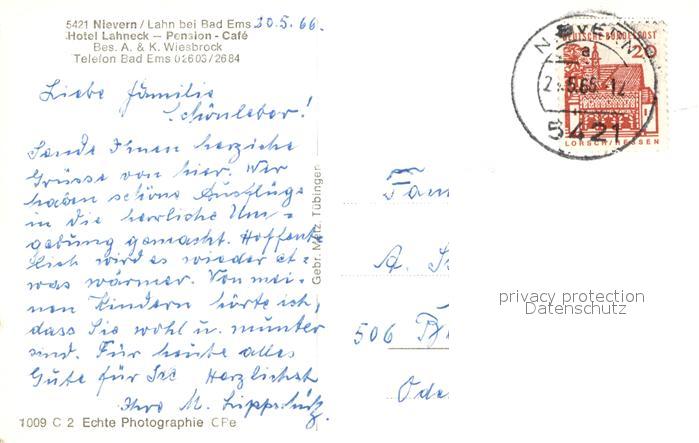 5421 Nievern / Lahn bei Bad Ems 20.5.66.
Hotel Lahneck — Pension - Café
Bes. A. & K. Wiesbrock
Telefon Bad Ems 02603/2684
Liebe Familie
Schönleber!
Sende Ihnen herzliche
Grüsse von hier. Wir
haben schöne Ausflüge
in die herrliche Um-
gebung gemacht. Hoffent-
lich wird es wieder et-
was wärmer. Von mei-
nen Kindern hörte ich,
dass Sie wohl u. munter
sind. Für heute alles
Gute für Sie Herzlichst
Ihre M.
1009 C 2 Echte Photographie CPe
Gebr. Metz, Tübingen
NIEVERN
a
5.66-12
5421
DEUTSCHE BUNDESPOST
20
LORSCH/HESSEN
Fam
A.
506
Ode
privacy protection
Datenschutz